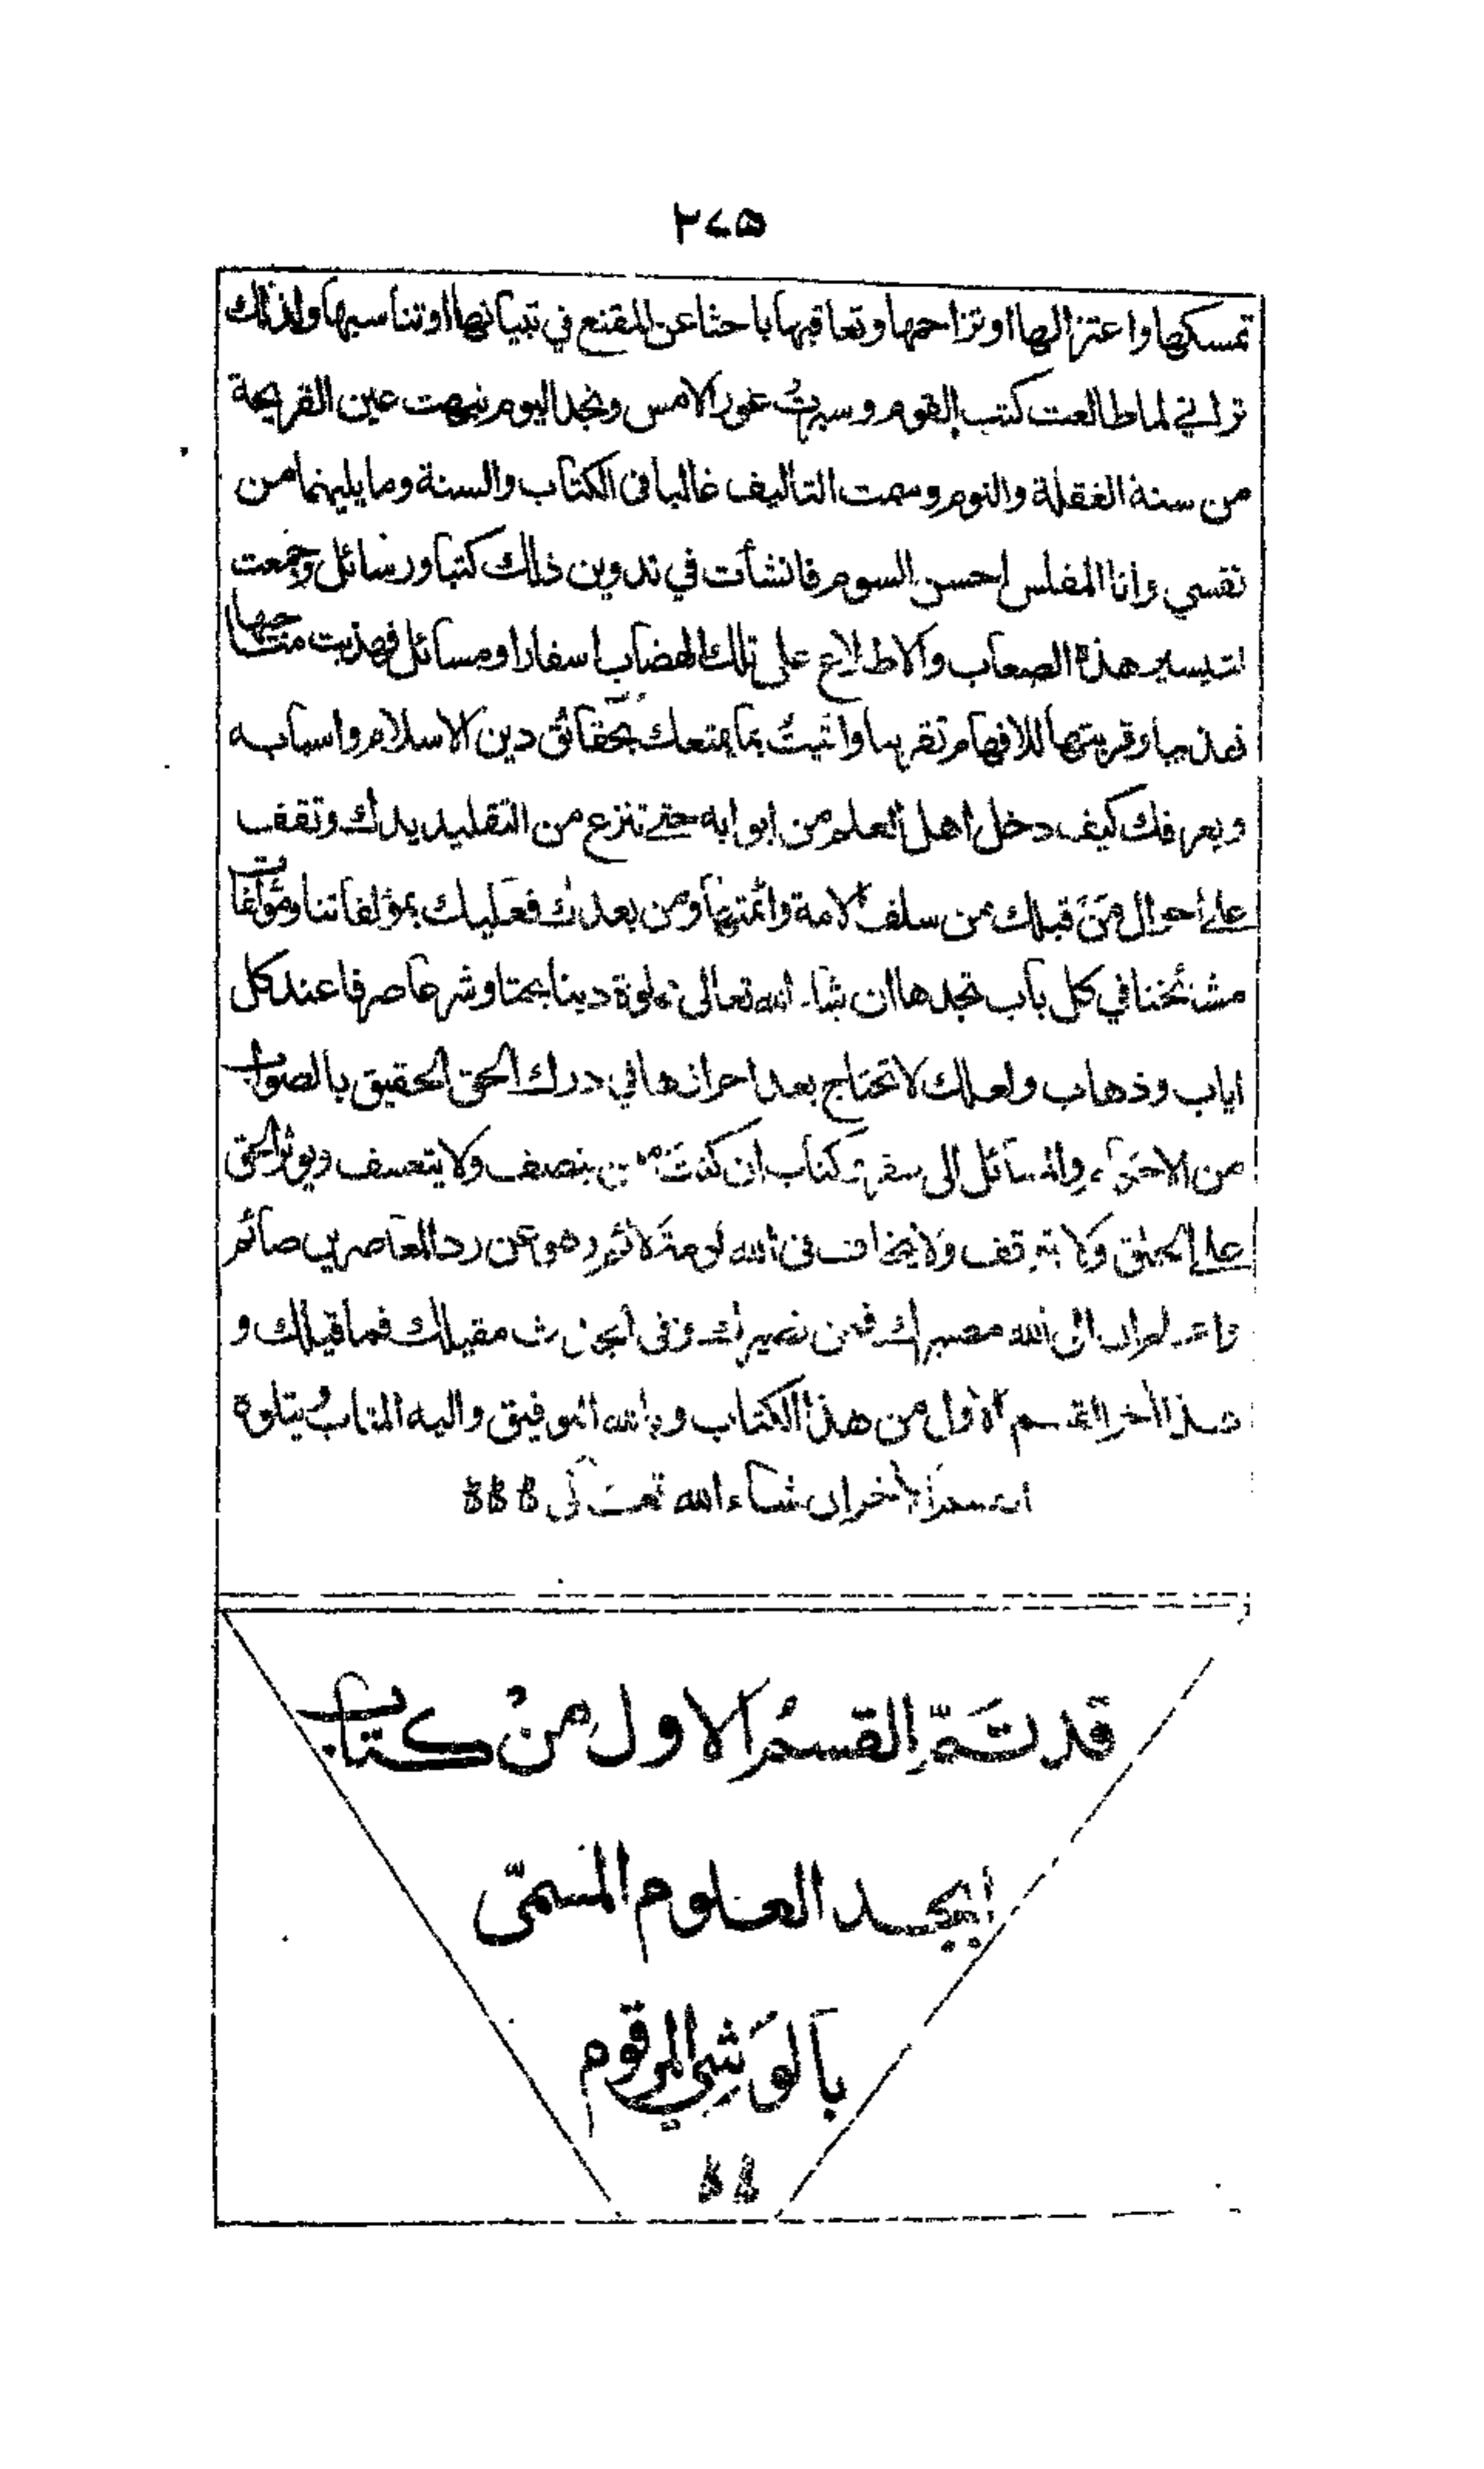 ٢٧٥
تمسكها واعتزالها او تزاحمها وتعاقبها باحثا عن المقنع في تبيانها او تناسبها ولذلك
تراني لما طالعت كتب القوم وسبرت غور الامس ونجد اليوم نبهت عين القريحة
من سنة الغفلة والنوم وسمت التاليف غالبا في الكتاب والسنة وما يليهما من
نفسي وانا المفلس احسن السوم فانشأت في تدوين ذلك كتبا ورسائل وجمعت
لتيسير هذه الصعاب والاطلاع على تلك الهضاب اسفارا ومسائل فهذبت مناحيها
تهذيبا وقربتها للافهام تقريبا واتيت بما يمتعك بحقائق دين الاسلام واسبابه
ويعرفك كيف دخل اهل العلم من ابوابه حتى تنزع من التقليد يدك وتقف
على احوال من قبلك من سلف الامة وائمتها ومن بعدك فعليك بمؤلفاتنا ومؤلفات
مشائخنا في كل باب تجدها ان شاء الله تعالى مملوة دينا بحتا وشرعا صرفا عند كل
اياب وذهاب ولعلك لا تحتاج بعد احرازها في درك الحق الحقيق بالصواب
من الاحكام والمسائل الى سفر وكتاب ان كنت ممن ينصف ولا يتعسف ويوثر الحق
على الخلق ولا يتوقف ولا يخاف في الله لومة لائم وهو عن رد المعاصرين صائم
واعلم ان الى الله مصيرك فمن نصيرك وفى الجدث مقيلك فما قيلك و
هذا اخر القسم الاول من هذا الكتاب وبالله التوفيق واليه المتاب ويتلوه
القسم الاخر ان شاء الله تعالى
قد تَمَّ القسمُ الاول من كتاب
ابجد العلوم المسمّى
بالوَشي المرقوم